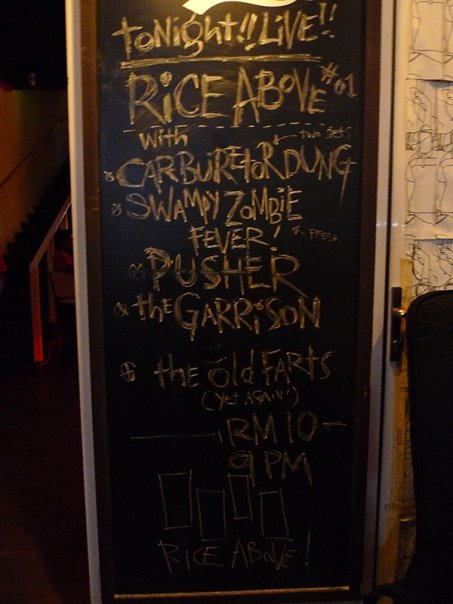 toNight!! LiVE!!
RiCE ABOVE #01
with two sets
CARBURETOR DUNG
SWAMPY ZOMBiE
FEVER! FRESH
PUSHER
the GARRiSON
the Old FARTS
(Yet AGAiN!)
RM 10
9 PM
RiCE ABOVE!